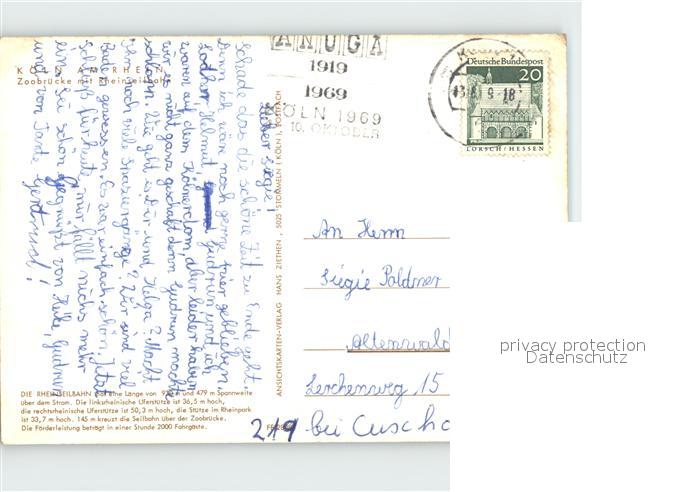 KÖLN AM RHEIN
Zoobrücke mit Rheinseilbahn
ANUGA
1919
1969
KÖLN 1969
10. OKTOBER
Deutsche Bundespost
20
LORSCH/HESSEN
Lieber Siegie!
Schade das die schöne Zeit zu Ende geht.
Denn ich wäre noch gerne hier geblieben.
Lothar, Helmut, Gudrun, und ich
waren auf dem Kölnerdom, aber leider haben
wir es nicht ganz geschafft denn Gudrun machte
schlapp. Wie geht es Dir und Helga? Macht
ihr noch viele Spaziergänge? Wir sind viel
Baden gewesen. Es war einfach schön. Jetzt
Schluß für heute, mir fällt nichts mehr
ein. Sei schön gegrüßt von Heike, Gudrun
und von Tante Gertrud!
ANSICHTSKARTEN-VERLAG HANS ZIETHEN, 5025 STOMMELN (KÖLN), POSTFACH
An Herrn
Siegie Poldner
Altenwald
Lerchenweg 15
219 bei Cuxha
DIE RHEINSEILBAHN hat eine Länge von und 479 m Spannweite
über dem Strom. Die linksrheinische Uferstütze ist 36,5 m hoch,
die rechtsrheinische Uferstütze ist 50,3 m hoch, die Stütze im Rheinpark
ist 33,7 m hoch. 145 m kreuzt die Seilbahn über der Zoobrücke.
Die Förderleistung beträgt in einer Stunde 2000 Fahrgäste.
privacy protection
Datenschutz